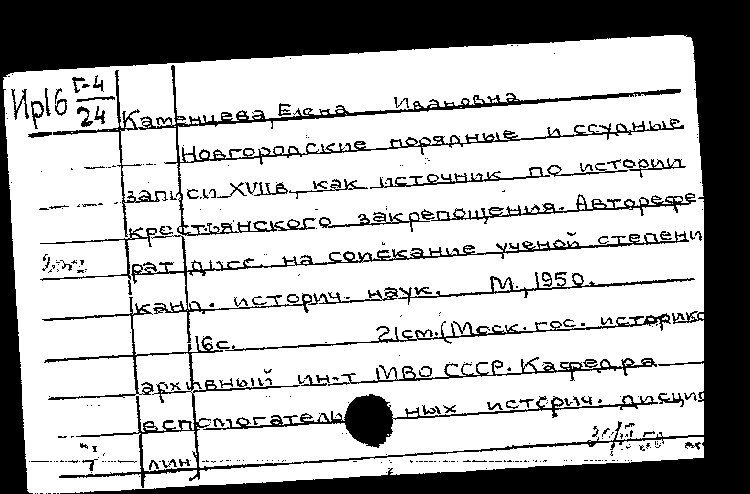 Ир16 Г-4
24
Каменцева, Елена Ивановна
Новгородские порядные и ссудные
записи XVII в., как источник по истории
крестьянского закрепощения. Авторефе-
рат дисс. на соискание ученой степени
канд. историч. наук. М., 1950.
16с. 21см. (Моск. гос. историко
архивный ин-т МВО СССР. Кафедра
вспомогательных историч. дисцип
лин)